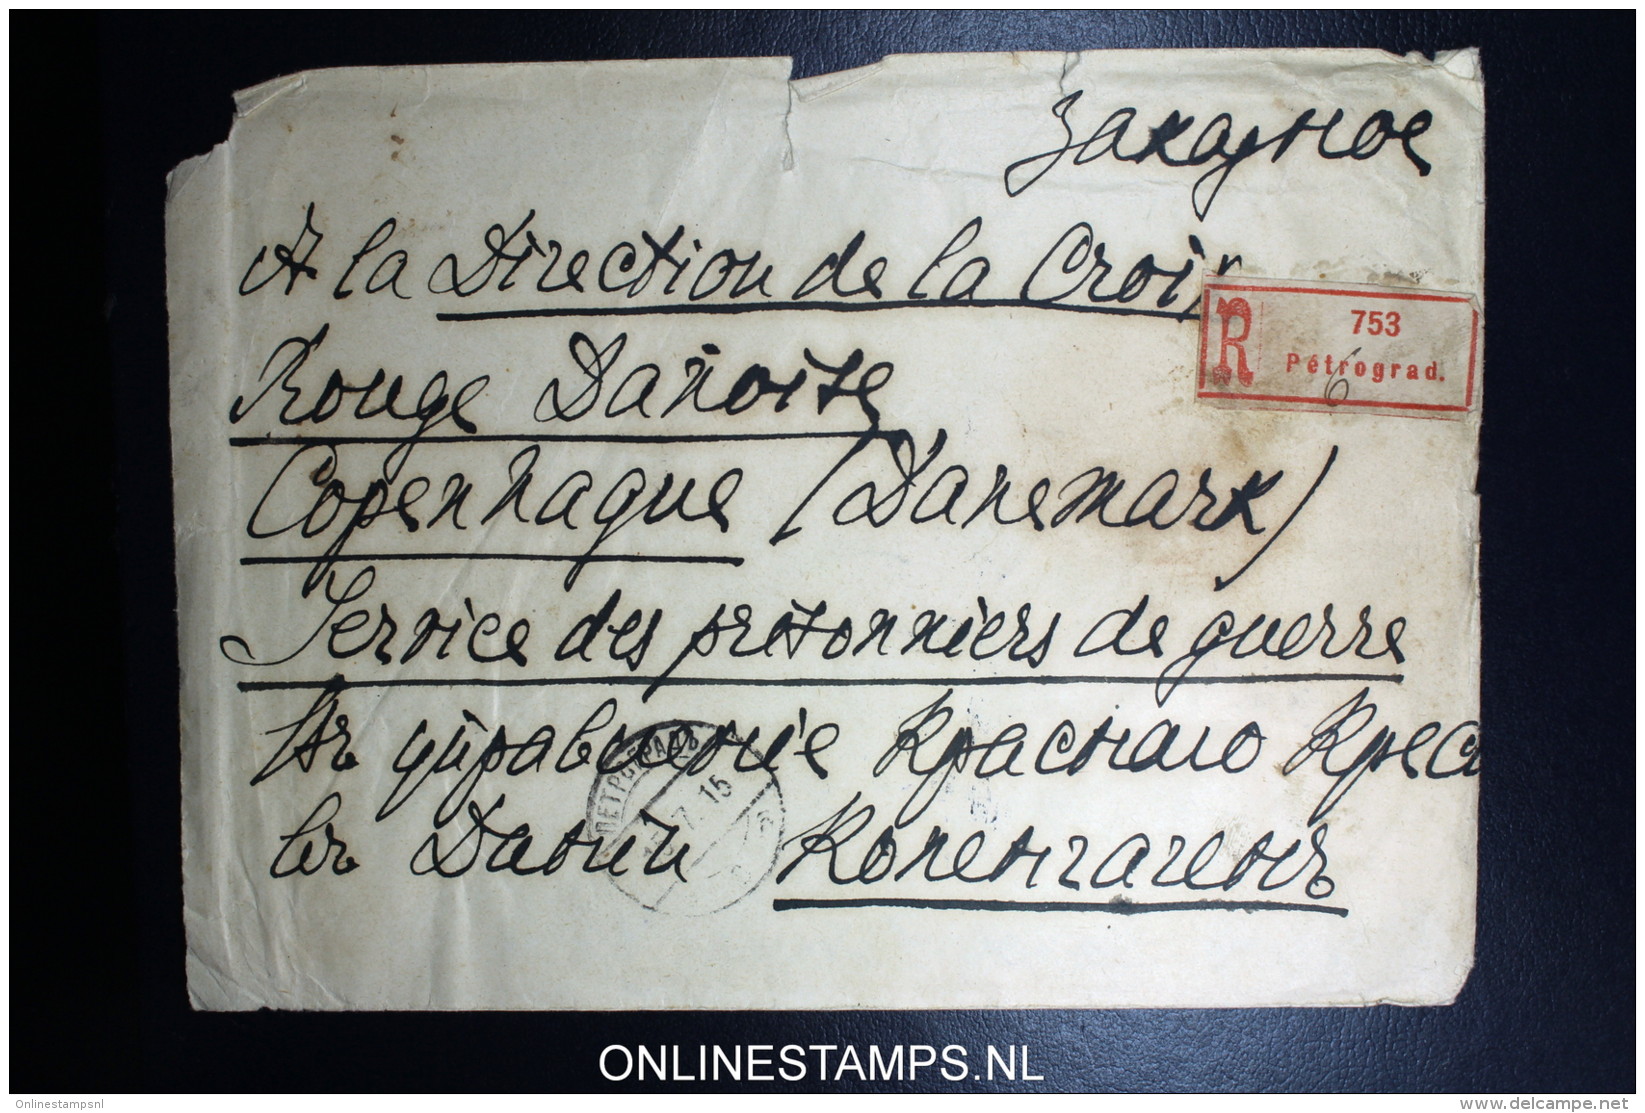 Заказное
A la Direction de la Croix
Rouge Danoise
R 753
Pétrograd.
6
Copenhague (Danemark)
Service des prisonniers de guerre
Въ управленіе Краснаго Крес
ПЕТРОГРАДЪ
7.15
въ Даніи Копенгагенъ
ONLINESTAMPS.NL
Onlinestampsnl
www.delcampe.net